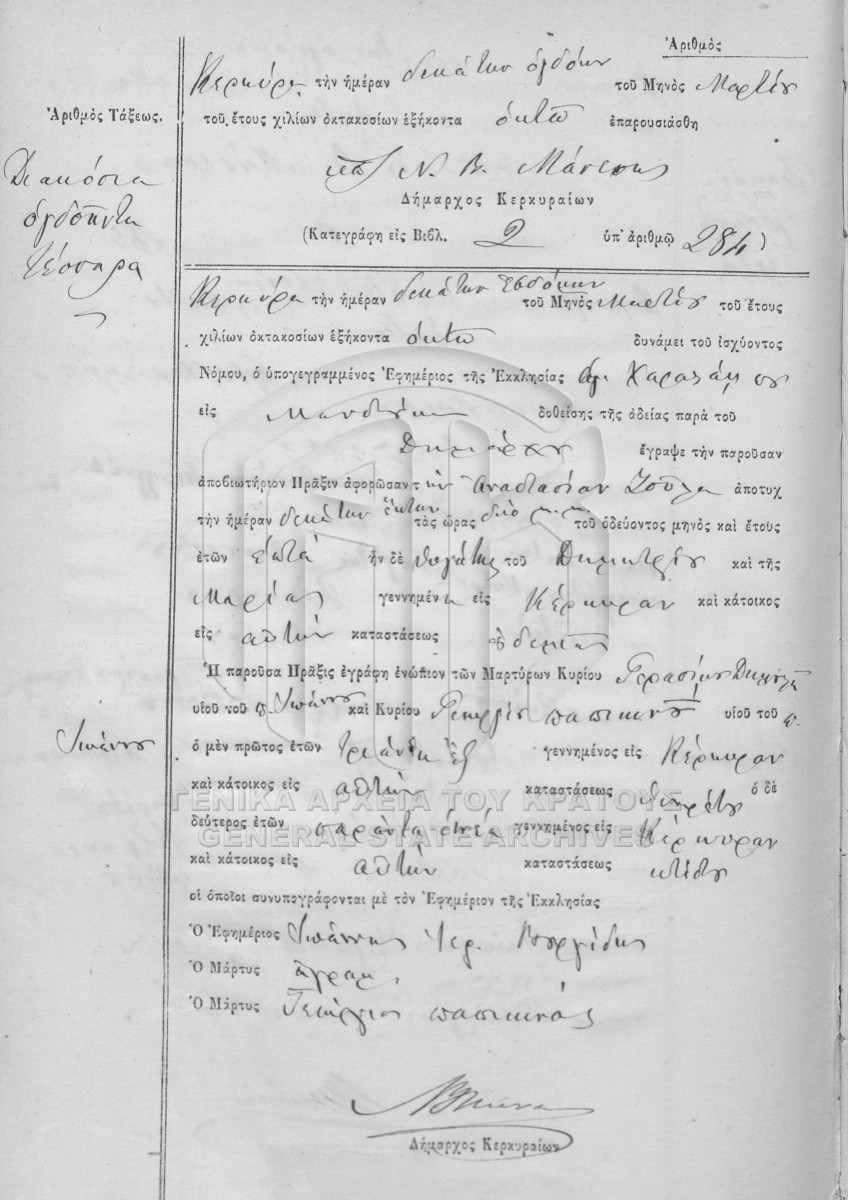 Ἀριθμὸς
Κερκύρᾳ τὴν ἡμέραν δεκάτην ὀγδόην τοῦ Μηνὸς Μαρτίου
Ἀριθμὸς Τάξεως.
τοῦ ἔτους χιλίων ὀκτακοσίων ἑξήκοντα ὀκτὼ ἐπαρουσιάσθη
Διακόσια
ὀγδοῆντα
τέσσαρα
Ν. Β. Μάνεσης
Δήμαρχος Κερκυραίων
(Κατεγράφη εἰς Βιβλ. 2 ὑπ᾽ ἀριθμῷ 284)
Κερκύρᾳ τὴν ἡμέραν δεκάτην τοῦ Μηνὸς Μαρτίου τοῦ ἔτους
χιλίων ὀκτακοσίων ἑξήκοντα ὀκτὼ δυνάμει τοῦ ἰσχύοντος
Νόμου, ὁ ὑπογεγραμμένος Ἐφημέριος τῆς Ἐκκλησίας Ἁγ. Χαραλάμπου
εἰς Μανδούκι δοθείσης τῆς ἀδείας παρὰ τοῦ
Δημάρχου ἔγραψε τὴν παροῦσαν
ἀποβιωτήριον Πρᾶξιν ἀφορῶσαν τὴν Ἀναστασίαν Ζούλα ἀποτυχ
τὴν ἡμέραν δεκάτην ἕκτην τὰς ὥρας δύο μ.μ. τοῦ ὁδεύοντος μηνὸς καὶ ἔτους
ἐτῶν ἑπτὰ ἦν δὲ θυγάτηρ τοῦ Δημητρίου καὶ τῆς
Μαρίας γεννημένη εἰς Κέρκυραν καὶ κάτοικος
εἰς αὐτὴν καταστάσεως οὐδεμιᾶς
Ἡ παροῦσα Πρᾶξις ἐγράφη ἐνώπιον τῶν Μαρτύρων Κυρίου Γερασίμου
υἱοῦ τοῦ π. Ἰωάννου καὶ Κυρίου Γεωργίου υἱοῦ τοῦ π.
Ἰωάννου
ὁ μὲν πρῶτος ἐτῶν τριάντα ἓξ γεννημένος εἰς Κέρκυραν
καὶ κάτοικος εἰς αὐτὴν καταστάσεως ὁ δὲ
ΓΕΝΙΚΑ ΑΡΧΕΙΑ ΤΟΥ ΚΡΑΤΟΥΣ
δεύτερος ἐτῶν σαράντα ἐννέα γεννημένος εἰς Κέρκυραν
GENERAL STATE ARCHIVES
καὶ κάτοικος εἰς αὐτὴν καταστάσεως κτίστου
οἱ ὁποῖοι συνυπογράφονται μὲ τὸν Ἐφημέριον τῆς Ἐκκλησίας
Ὁ Ἐφημέριος Ἰωάννης Ἱερ.
Ὁ Μάρτυς ἀγραμ.
Ὁ Μάρτυς Γεώργιος
Δήμαρχος Κερκυραίων